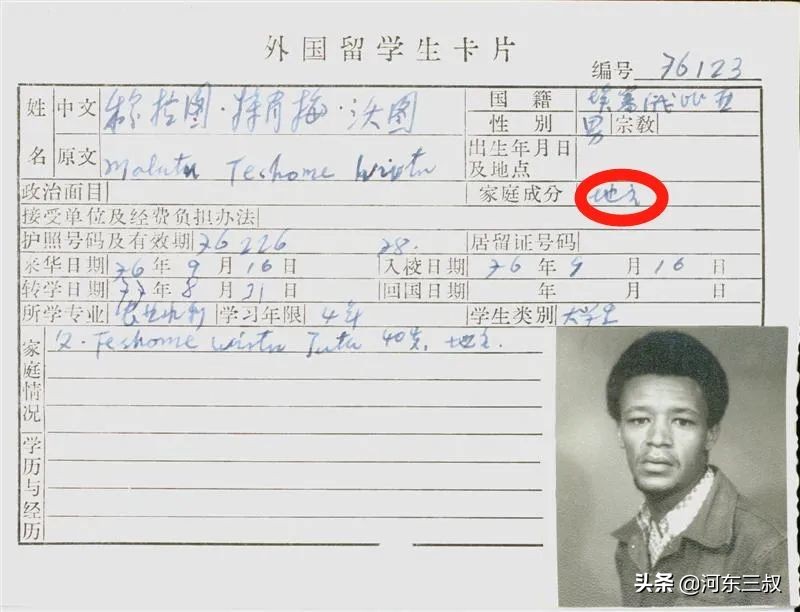 外国留学生卡片
编号 76123
姓名 中文 穆拉图·特肖梅·沃图 国籍 埃塞俄比亚
性别 男 宗教
原文 Malutu Teshome Wirtu 出生年月日及地点
政治面目 家庭成分 地主
接受单位及经费负担办法
护照号码及有效期 76226 78. 居留证号码
来华日期 76年9月16日 入校日期 76年9月16日
转学日期 77年8月31日 回国日期 年 月 日
所学专业 学习年限 4年 学生类别 大学生
家庭情况 父. Teshome Wirtu 40岁，地主.
学历与经历
头条 @河东三叔